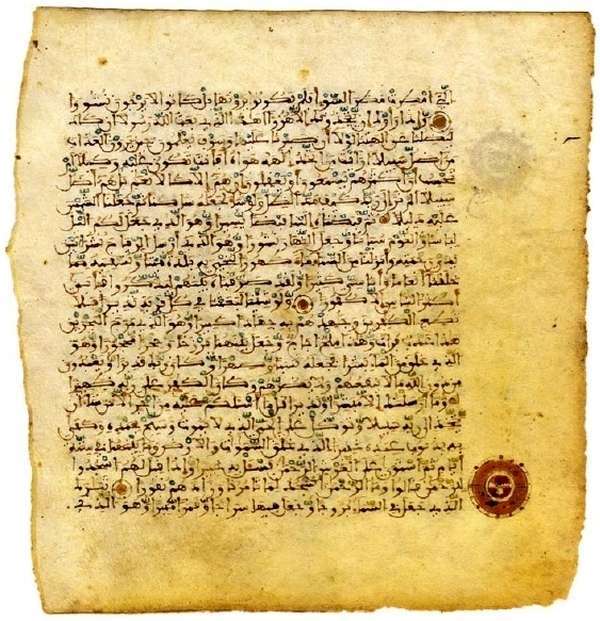 التي أمطرت مطر السوء أفلم يكونوا يرونها بل كانوا لا يرجون نشورا
وإذا رأوك إن يتخذونك إلا هزؤا أهذا الذي بعث الله رسولا إن كاد
ليضلنا عن ءالهتنا لولا أن صبرنا عليها وسوف يعلمون حين يرون العذاب
من أضل سبيلا أرأيت من اتخذ إلهه هواه أفأنت تكون عليه وكيلا أم
تحسب أن أكثرهم يسمعون أو يعقلون إن هم إلا كالأنعم بل هم أضل
سبيلا ألم تر إلى ربك كيف مد الظل ولو شاء لجعله ساكنا ثم جعلنا الشمس
عليه دليلا ثم قبضنه إلينا قبضا يسيرا وهو الذي جعل لكم اليل
لباسا والنوم سباتا وجعل النهار نشورا وهو الذي أرسل الريح نشرا بين
يدي رحمته وأنزلنا من السماء ماء طهورا لنحيي به بلدة ميتا ونسقيه مما
خلقنا أنعما وأناسي كثيرا ولقد صرفنه بينهم ليذكروا فأبى
أكثر الناس إلا كفورا ولو شئنا لبعثنا في كل قرية نذيرا فلا
تطع الكفرين وجهدهم به جهادا كبيرا وهو الذي مرج البحرين
هذا عذب فرات وهذا ملح أجاج وجعل بينهما برزخا وحجرا محجورا وهو
الذي خلق من الماء بشرا فجعله نسبا وصهرا وكان ربك قديرا ويعبدون
من دون الله ما لا ينفعهم ولا يضرهم وكان الكافر على ربه ظهيرا
وما أرسلنك إلا مبشرا ونذيرا قل ما أسئلكم عليه من أجر إلا من شاء أن
يتخذ إلى ربه سبيلا وتوكل على الحي الذي لا يموت وسبح بحمده وكفى
به بذنوب عباده خبيرا الذي خلق السموت والأرض وما بينهما في ستة
أيام ثم استوى على العرش الرحمن فسئل به خبيرا وإذا قيل لهم اسجدوا
للرحمن قالوا وما الرحمن أنسجد لما تأمرنا وزادهم نفورا تبرك
الذي جعل في السماء بروجا وجعل فيها سرجا وقمرا منيرا وهو الذي